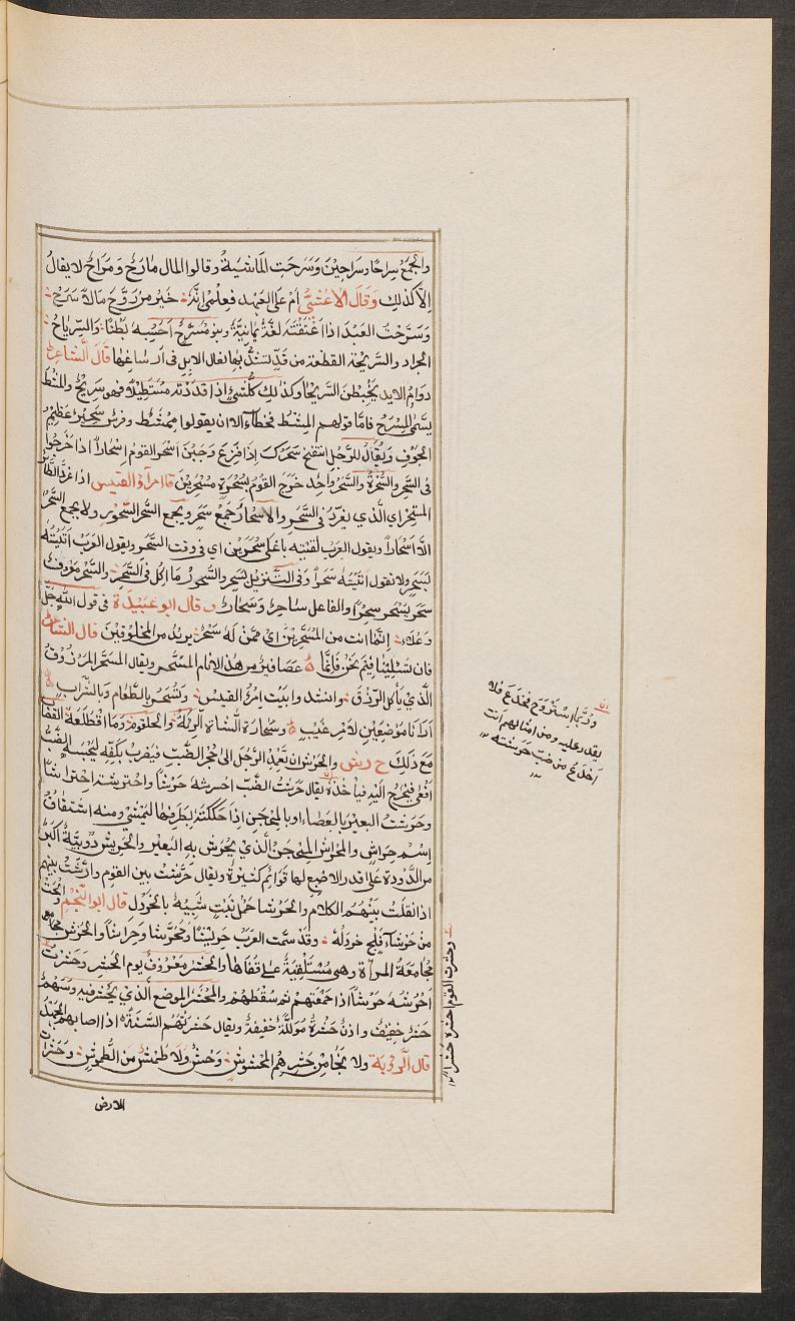 والجمع سراحا وسراحين وسرحت الماشية وقالوا المال مارح ومراح لا يقال
الا كذلك وقال الاعشى ام على العهد فعلمى انه خير من روح مالا سرح
وسرحت العبد اذا اعتقته لغة يمانية وبنو مسرح احسبه بطنا والسرياح
الجراد والسريحة القطعة من قد تشد بها نعال الابل فى ارساغها قال الشاعر
دوامى الايد يخبطن السريحا وكذلك كلشى اذا قددته مستطيلا فهو سريح والمشط
يسمى المسرح فاما قولهم المشط فخطأ الا ان يقولوا ممشط وفرس سحير عظيم
الجوف ويقال للرجل انتفخ سحرك اذا فزع وجبن اسحر القوم اسحارا اذا خرجوا
فى السحر والسحرة والسحر واحد خرج القوم بسحرة مسحرين قال امرؤ القيس اذا غرد الطائر
المستحر اى الذى يغرد فى السحر والاسحار جمع سحر ويجمع السحر السحور ولا يجمع السحر
الا اسحارا ويقول العرب لقيته باعلى سحرين اى فى وقت السحر ويقول العرب اتيته
بسحر ولا نقول اتيته سحرا وفى التنزيل بسحر والسحور ما اكل فى السحر والسحر معروف
سحر يسحر سحرا والفاعل ساحر وسحار وقال ابو عبيدة فى قول الله جل
وعلاء انما انت من المسحرين اى ممن له سحر يريد من المخلوقين قال الشاعر
فان تسئلينا فيم نحن فاننا عصافير من هذا الانام المسحر ويقال المسحر المرزوق
الذى ياكل الرزق وانشد وابيت امرؤ القيس ونسحر بالطعام وبالشراب
ارانا موضعين لامر غيب وسحارة الشاة الرية والحلقوم وما اقتطعة القصاب
مع ذلك ح ر ش والحرش ان يعمد الرجل الى حجر الضب فيضرب بكفه ليحسبه الضب
افعى فيخرج اليه فياخذه يقال حرشت الضب احرشه حرشا واحترشته احتراشا
وحرشت البعير بالعصاء او بالمحجن اذا حككته بطرفها ليمشى ومنه اشتقاق
اسم حراش والمحراش المحجن الذى يحرش به البعير والحريش دويبة اكبر
من الدودة على قدر الاصبع لها قوائم كثيرة ويقال حرشت بين القوم وارشت بينهم
اذا نقلت بينهم الكلام والحرشا حمل نبت شبيه بالخردل قال ابو النجم وانحت
من حرشاء فلج خردله وقد سمت العرب حريشا ومحرشا وحراشا والحرش مجامع
مجامعة المراة وهى مستلقية على قفاها والحشر معروف يوم الحشر وحشرت
احرشه حرشا اذا جمعتهم ثم سقطهم والمحشر الموضع الذى يحشر فيه وسهم
حشر خفيف واذن حشرة مؤللة خفيفة ويقال حشرتهم السنة اذا اصابهم الجهد
قال الروبة ولا نجا من حشرهم المحشوش وحش ولا طمش من الطموش وحشرات
الارض
وربما استروح فخدع فلا
يقدر عليه ومن امثالهم انت
اخدع من ضب حرشته
وحشرت القوم احشره حشرا